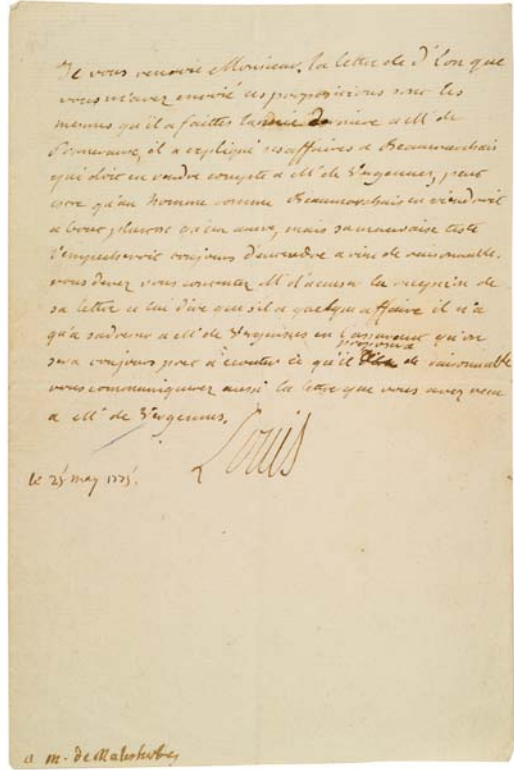 Je vous renvoie Monsieur, la lettre de d'Eon que
vous m'avez envoié ces propositions sont les
mesmes qu'il a faittes l'année dernière a Mr de
il a expliqué ses affaires a Beaumarchais
qui doit en rendre compte a Mr de Vergennes, peut
estre qu'un homme comme Beaumarchais en viendroit
a bout plustost qu'un autre, mais sa mauvaise teste
l'empescheroit toujours d'entendre a rien de raisonnable.
vous devez vous contenter Mr d'acuser la reception de
sa lettre et lui dire que s'il a quelque affaire il n'a
qu'a sadresser a Mr de Vergennes en l'assurant qu'on
proposera
sera toujours pret a ecouter ce qu'il de raisonnable
vous communiquerez aussi la lettre que vous avez recue
a Mr de Vergennes.
Louis
le may
a m. de Malesherbes